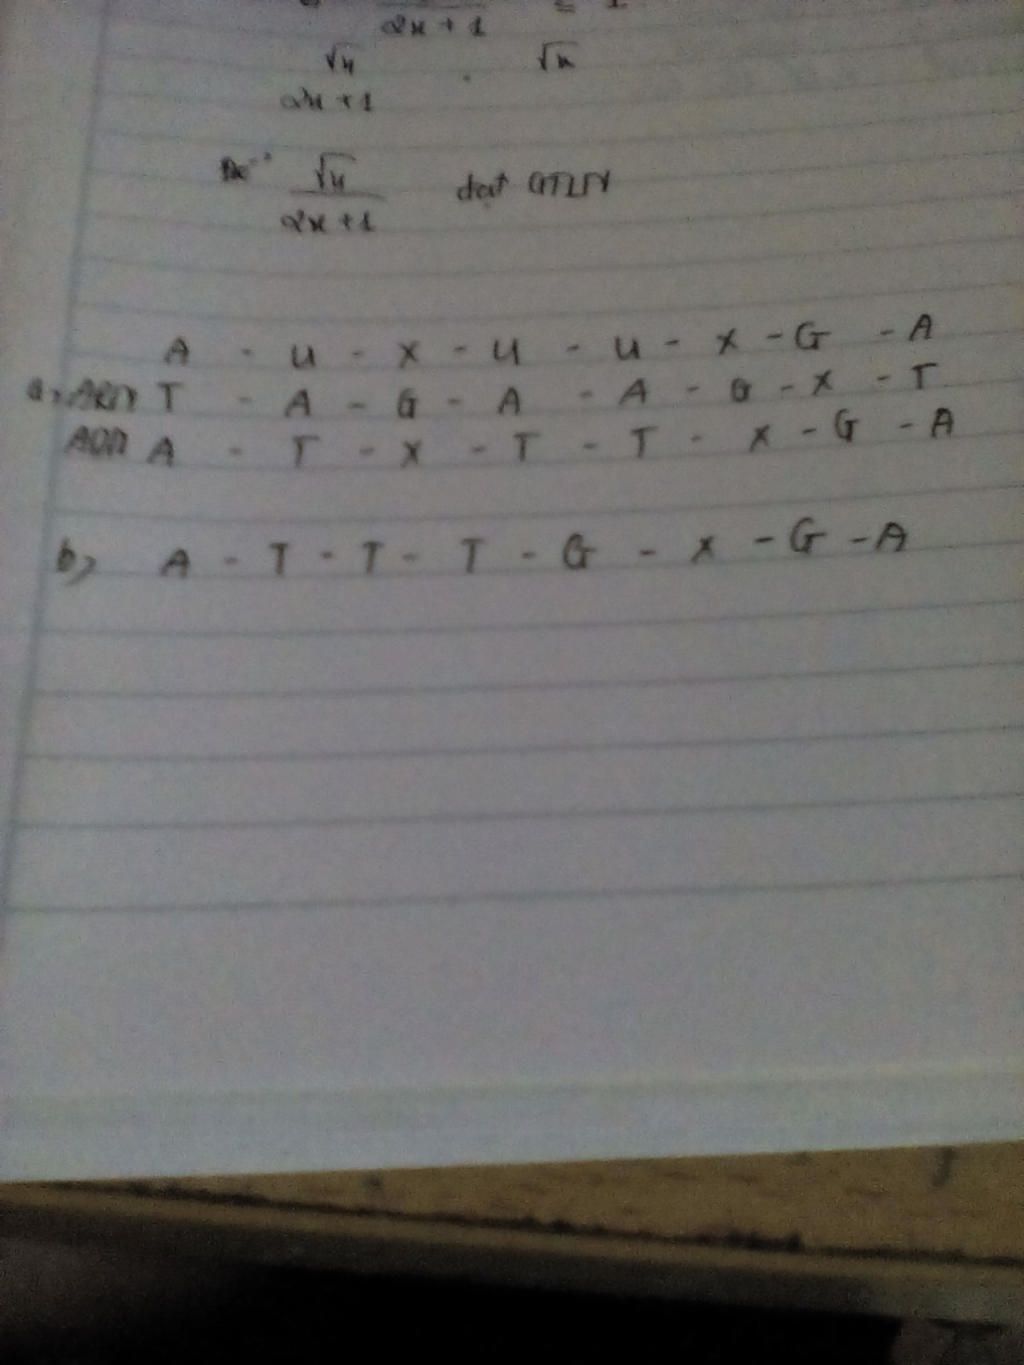 2x + 1 = 1
√x . √x
2x + 1
√x đạt GTLN
2x + 1
A - U - X - U - U - X - G - A
a, ARN T - A - G - A - A - G - X - T
ADN A - T - X - T - T - X - G - A
b, A - T - T - T - G - X - G - A